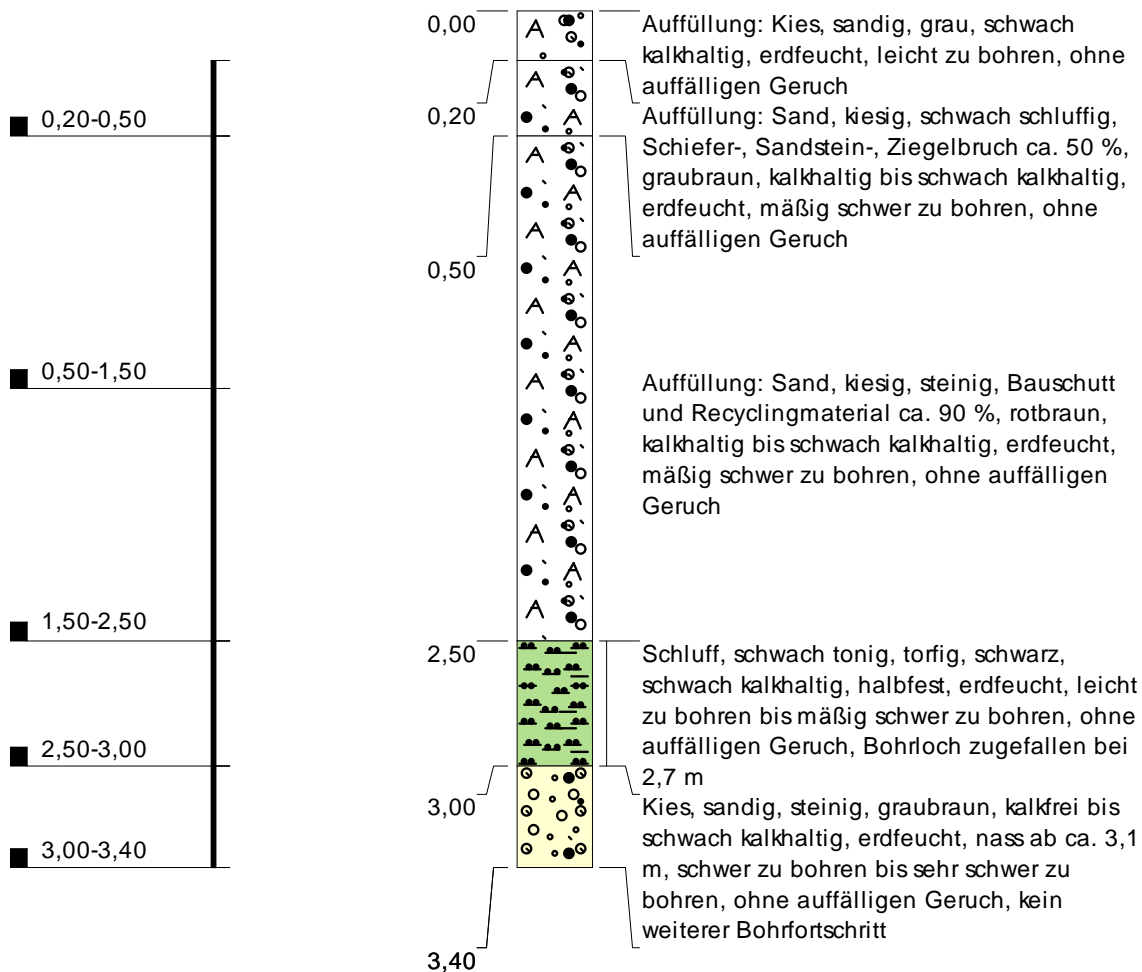 0,00
Auffüllung: Kies, sandig, grau, schwach
kalkhaltig, erdfeucht, leicht zu bohren, ohne
auffälligen Geruch
0,20-0,50
0,20
Auffüllung: Sand, kiesig, schwach schluffig,
Schiefer-, Sandstein-, Ziegelbruch ca. 50 %,
graubraun, kalkhaltig bis schwach kalkhaltig,
erdfeucht, mäßig schwer zu bohren, ohne
auffälligen Geruch
0,50
0,50-1,50
Auffüllung: Sand, kiesig, steinig, Bauschutt
und Recyclingmaterial ca. 90 %, rotbraun,
kalkhaltig bis schwach kalkhaltig, erdfeucht,
mäßig schwer zu bohren, ohne auffälligen
Geruch
1,50-2,50
2,50
Schluff, schwach tonig, torfig, schwarz,
schwach kalkhaltig, halbfest, erdfeucht, leicht
zu bohren bis mäßig schwer zu bohren, ohne
auffälligen Geruch, Bohrloch zugefallen bei
2,7 m
2,50-3,00
3,00
Kies, sandig, steinig, graubraun, kalkfrei bis
schwach kalkhaltig, erdfeucht, nass ab ca. 3,1
m, schwer zu bohren bis sehr schwer zu
bohren, ohne auffälligen Geruch, kein
weiterer Bohrfortschritt
3,00-3,40
3,40